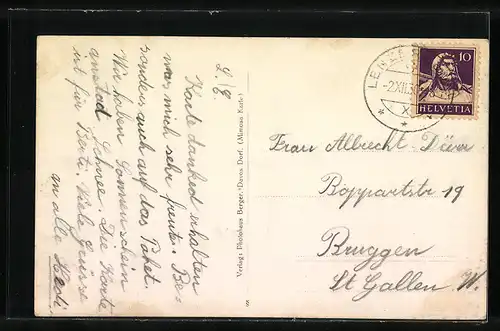 L. E.
Karte dankend erhalten
was mich sehr freute. Bes
sonders auch auf das Päket.
Wir haben Sonnenschein
anstad Schnee. Die Karte
ist für Berti. Viele Grüsse
an alle Hedi
Verlag: Photohaus Berger, Davos-Dorf. (Mimosa Karte)
10
HELVETIA
-2.XII.3
Frau Albrecht-Dürr
Boppartstr 19
Bruggen
St Gallen W.